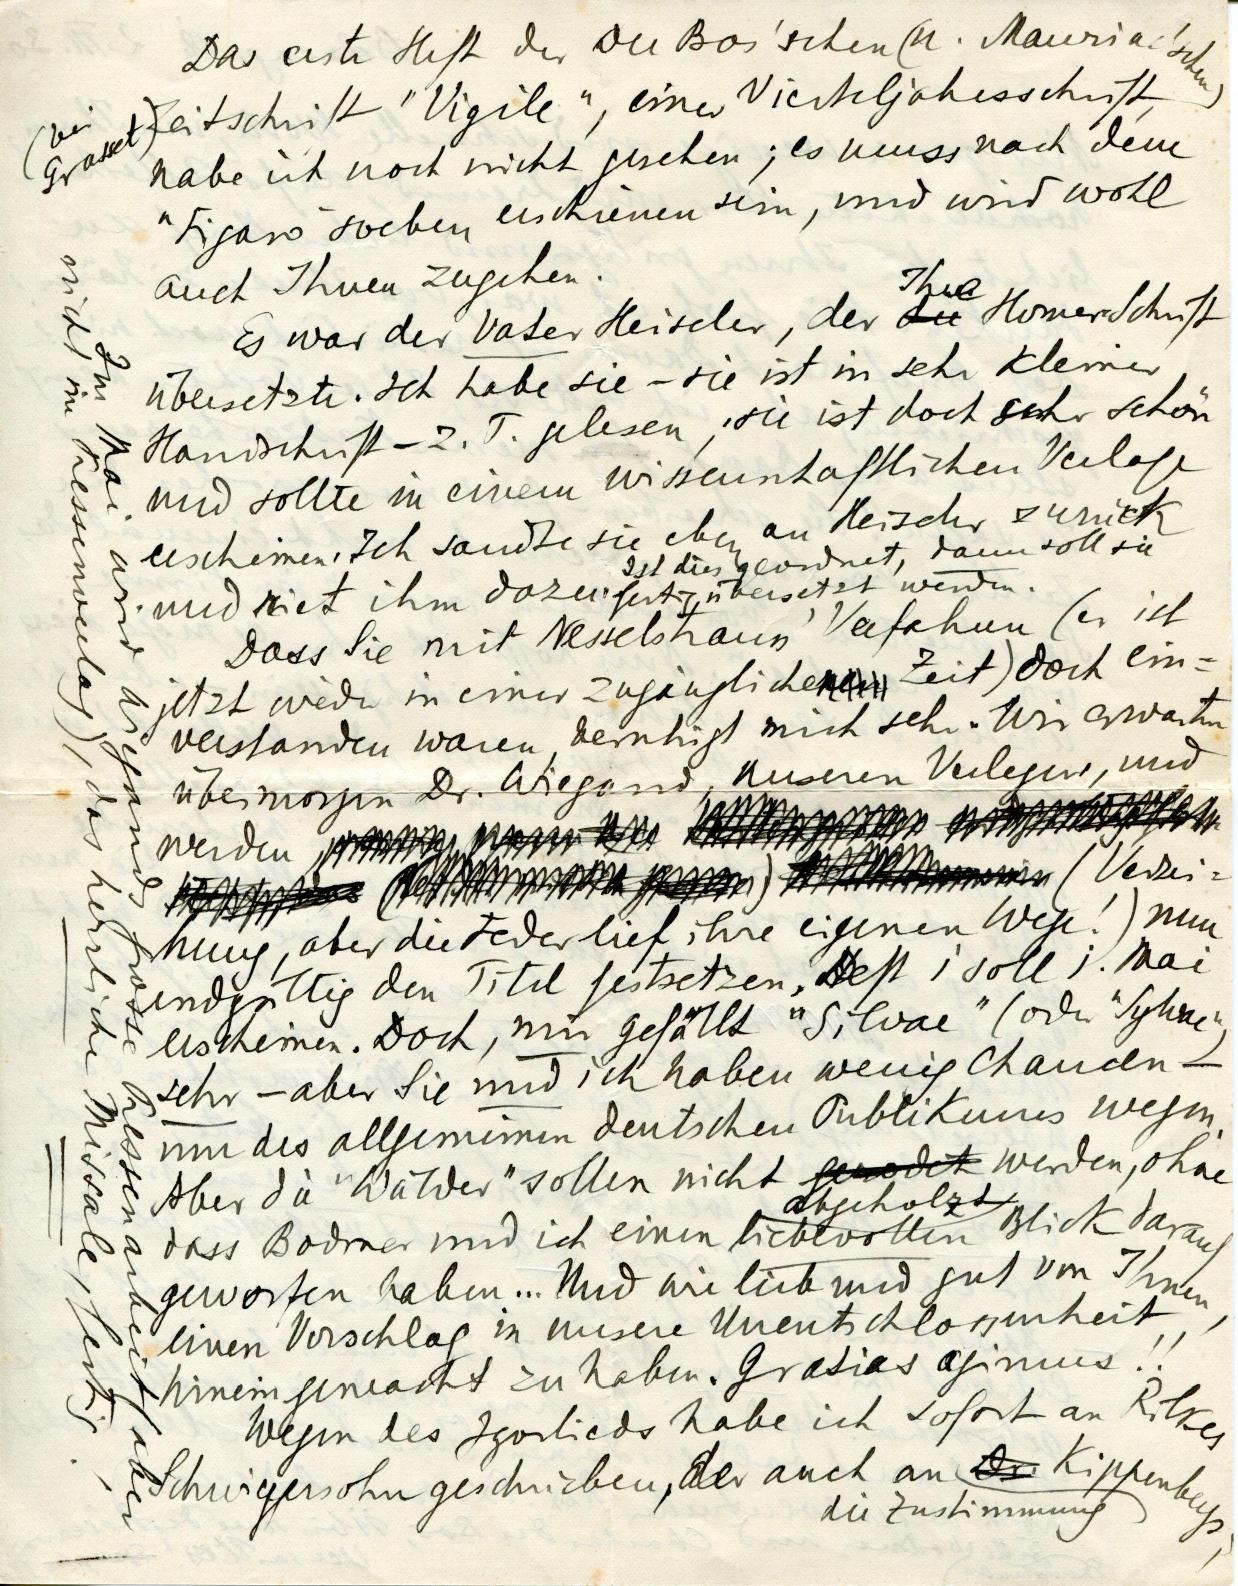 Das erste Heft der Du Bos'schen (u. Mauriac'schen)
Zeitschrift "Vigile", einer Vierteljahresschrift
(bei Grasset)
habe ich noch nicht gesehen; es muss nach dem
"Figaro" soeben erschienen sein, und wird wohl
auch Ihnen zugehen.
Es war der Vater Heiseler, der die Ihre Homer-Schrift
übersetzte. Ich habe sie – sie ist in sehr kleiner
Handschrift – z. T. gelesen, sie ist doch sehr schön
und sollte in einem wissenschaftlichen Verlage
erscheinen. Ich sandte sie eben an Heiseler zurück
und riet ihm dazu. Ist dies geordnet, dann soll sie
fertig übersetzt werden.
Dass Sie mit Nesselstrauss' Verfahren (er ist
jetzt wieder in einer zugänglichen Zeit) doch ein=
verstanden waren, beruhigt mich sehr. Wir erwarten
übermorgen Dr. Wiegand, unseren Verleger, und
werden
(Verzei=
hung, aber die Feder lief ihre eigenen Wege!) nun
endgültig den Titel festsetzen. Heft 1 soll i. Mai
erscheinen. Doch, mir gefällt "Silvae" (oder "Sylvae")
sehr – aber Sie und ich haben wenig Chancen –
um des allgemeinen deutschen Publikums wegen.
Aber die "Wälder" sollen nicht gerodet werden, ohne
abgeholzt
dass Bodmer und ich einen liebevollen Blick darauf
geworfen haben... Und wie lieb und gut von Ihnen,
einen Vorschlag in unsere Unentschlossenheit
hineingemacht zu haben. Gratias agimus!!
Wegen des Igorlieds habe ich sofort an Rilkes
Schwiegersohn geschrieben, der auch an Dr. Kippenbergs,
die Zustimmung
Im Mai wird Wiegands grosse Pressenarbeit (aber
nicht im Pressenverlag), das herrliche Missale, fertig.